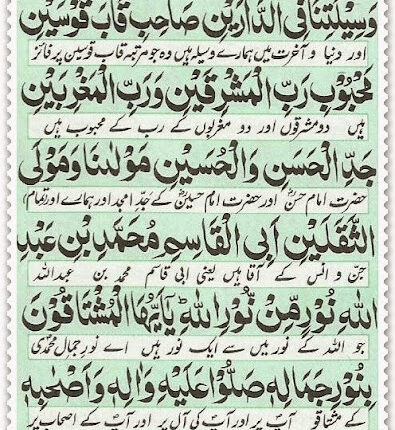 وَسِيْلَتِنَا فِي الدَّارَيْنِ صَاحِبِ قَابَ قَوْسَيْنِ
اور دنیا و آخرت میں ہمارے وسیلہ ہیں وہ جو مرتبہ قاب قوسین پر فائز
مَحْبُوْبِ رَبِّ الْمَشْرِقَيْنِ وَرَبِّ الْمَغْرِبَيْنِ
ہیں دو مشرقوں اور دو مغربوں کے رب کے محبوب ہیں
جَدِّ الْحَسَنِ وَالْحُسَيْنِ مَوْلٰنَا وَمَوْلَى
حضرت امام حسنؓ اور حضرت امام حسینؓ کے جد امجد اور ہمارے اور (تمام)
الثَّقَلَيْنِ اَبِى الْقَاسِمِ مُحَمَّدِ بْنِ عَبْدِ
جن و انس کے آقا ہیں یعنی ابی قاسم محمد بن عبداللہ
اللهِ نُوْرٍ مِّنْ نُّوْرِ اللهِ ط يٰٓاَيُّهَا الْمُشْتَاقُوْنَ
جو اللہ کے نور میں سے ایک نور ہیں اے نورِ جمالِ محمدی
بِنُوْرِ جَمَالِهٖ صَلُّوْا عَلَيْهِ وَاٰلِهٖ وَاَصْحٰبِهٖ
کے مشتاقو آپؐ پر اور آپؐ کی آل پر اور آپؐ کے اصحاب پر